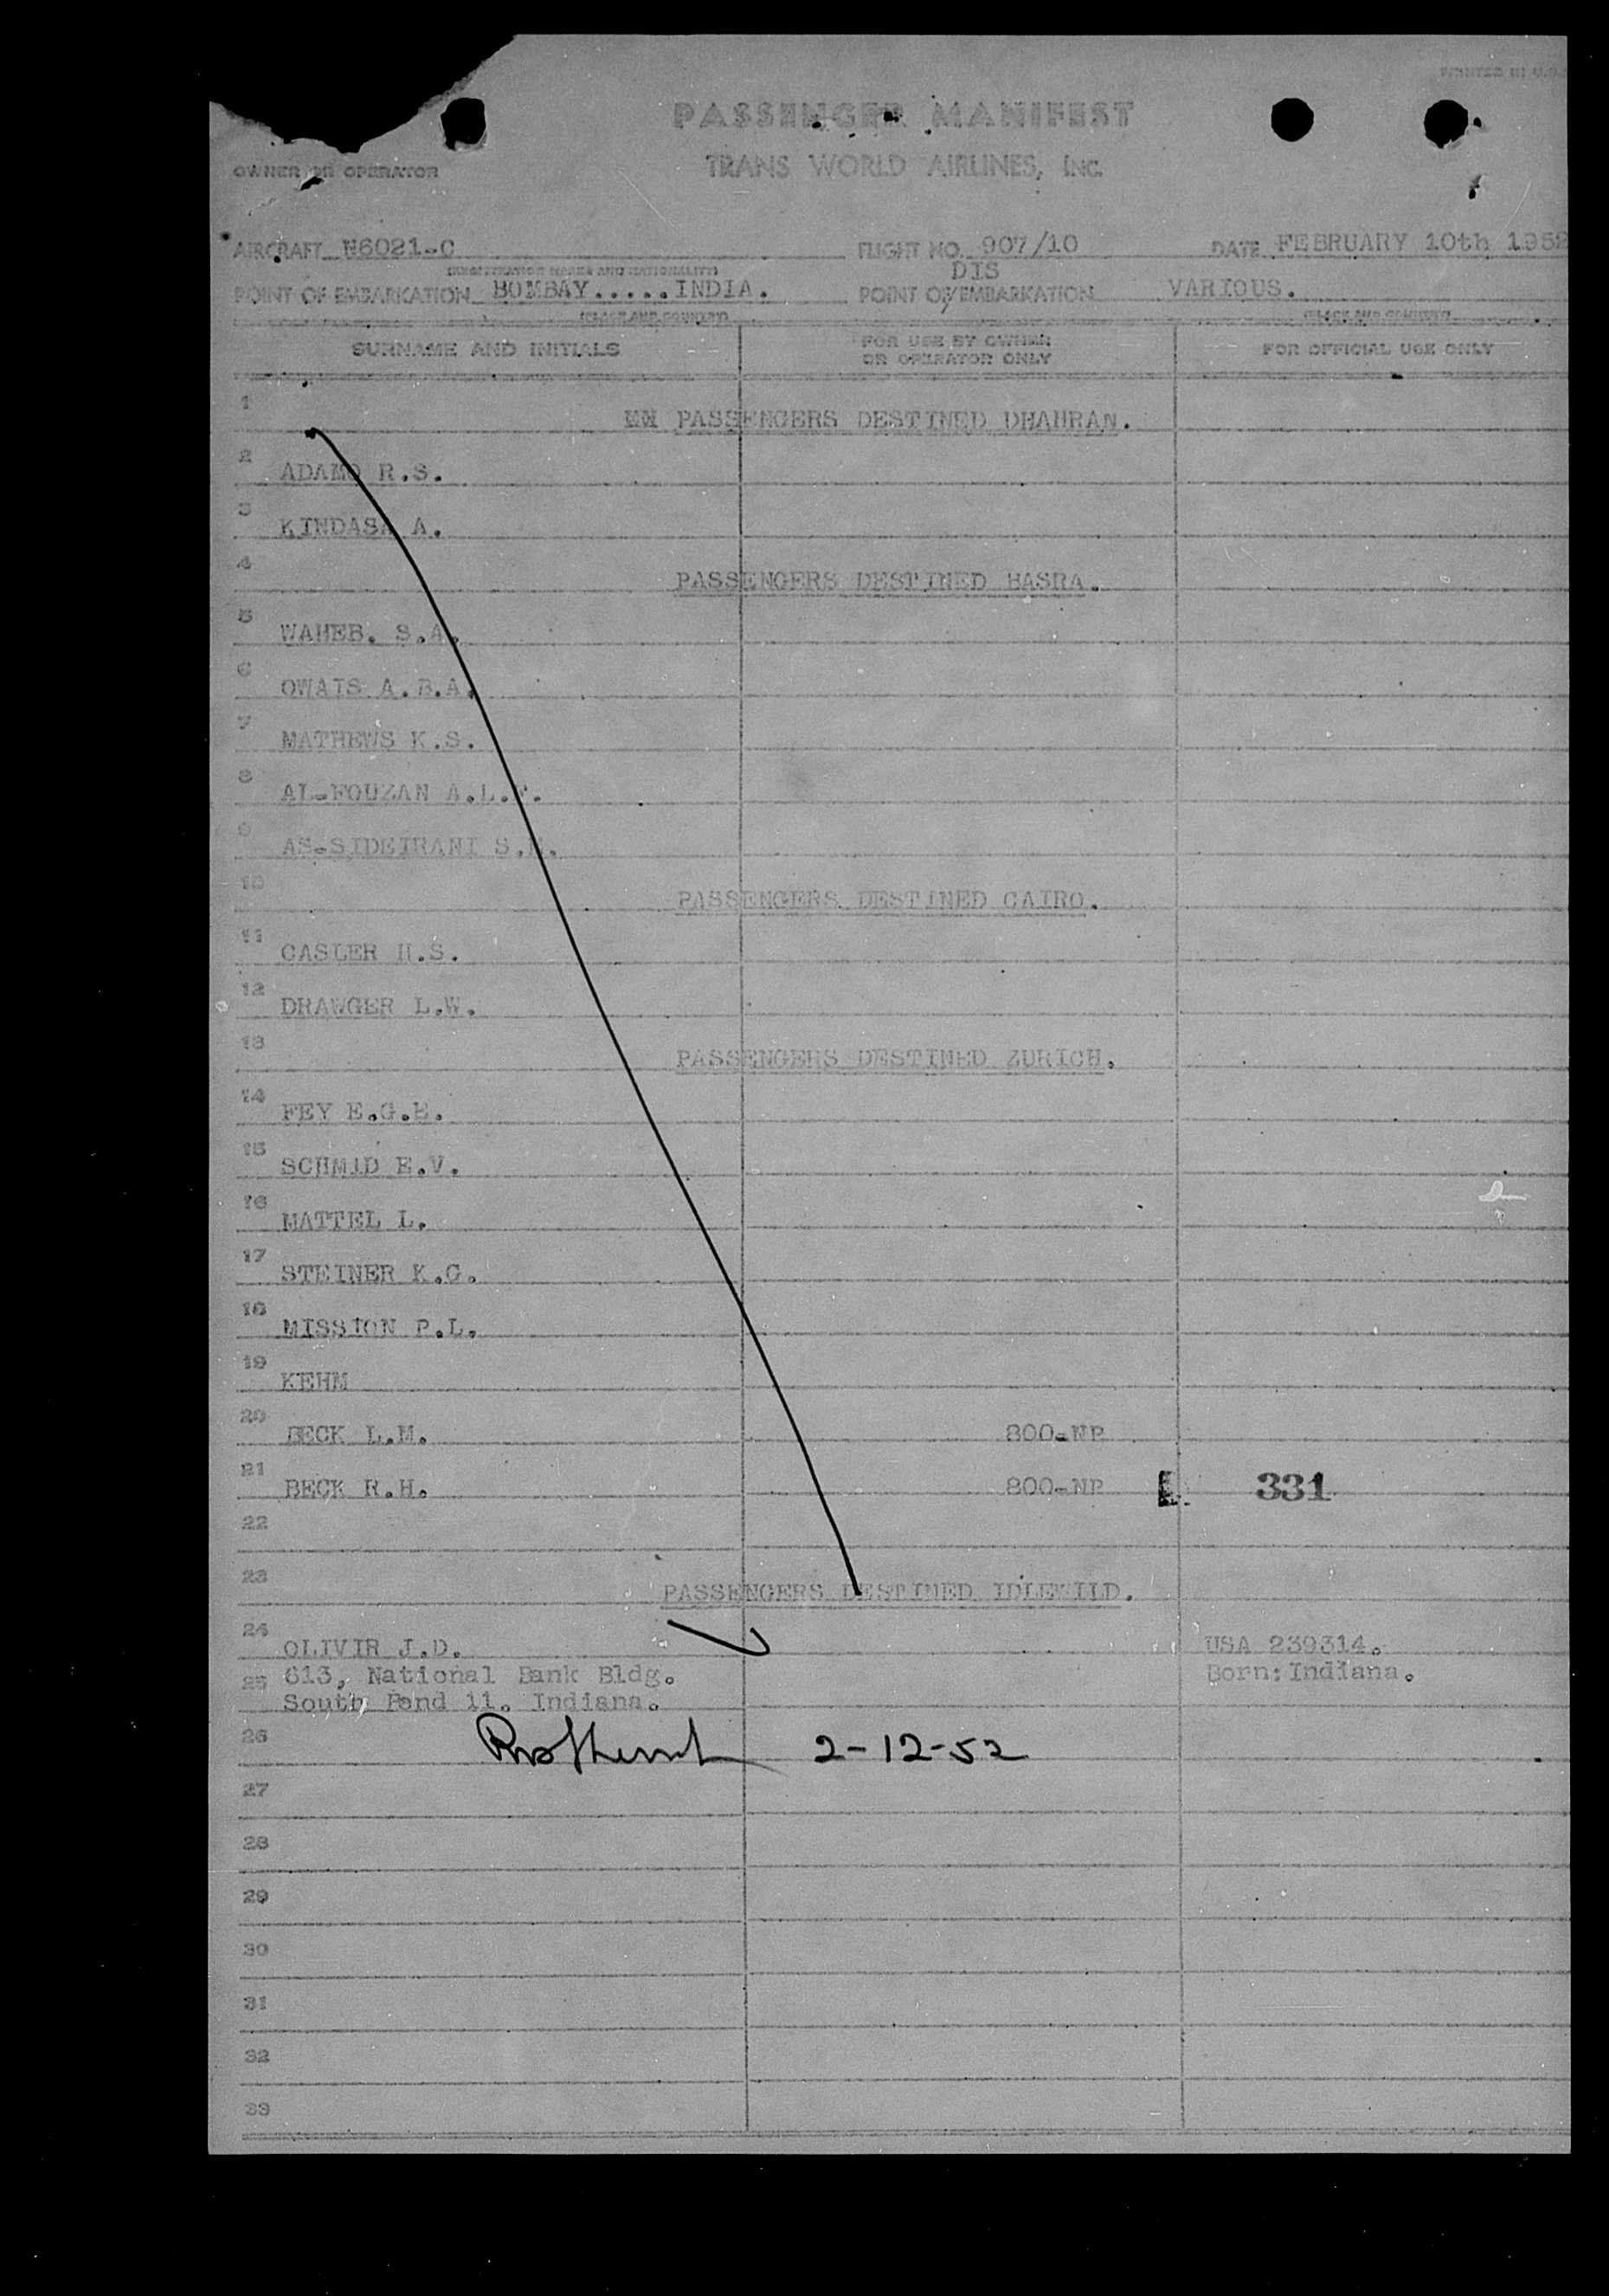 PRINTED IN U.S.
PASSENGER MANIFEST
OWNER OR OPERATOR TRANS WORLD AIRLINES, INC.
AIRCRAFT N6021-C FLIGHT NO. 907/10 DATE FEBRUARY 10th 1952
(REGISTRATION MARKS AND NATIONALITY) DIS
POINT OF EMBARKATION BOMBAY.....INDIA. POINT OF/EMBARKATION VARIOUS.
(PLACE AND COUNTRY) (PLACE AND COUNTRY)
SURNAME AND INITIALS FOR USE BY OWNER OR OPERATOR ONLY FOR OFFICIAL USE ONLY
1 PASSENGERS DESTINED DHAHRAN.
2 ADAMO R.S.
3 KINDASA A.
4 PASSENGERS DESTINED BASRA.
5 WAHEB. S.A.
6 OWAIS A.B.A.
7 MATHEWS K.S.
8 AL-FOUZAN A.L.
9 AS-SIDEIRANI S.
10 PASSENGERS DESTINED CAIRO.
11 CASLER H.S.
12 DRAWGER L.W.
13 PASSENGERS DESTINED ZURICH.
14 FEY E.G.E.
15 SCHMID E.V.
16 MATTEL L.
17 STEINER K.G.
18 MISSION P.L.
19 KEHM
20 BECK L.M. 800-NP
21 BECK R.H. 800-NP 331
22
23 PASSENGERS DESTINED IDLEWILD.
24 OLIVIR J.D. USA 239314.
25 613, National Bank Bldg. Born:Indiana.
South Bend 11. Indiana.
26 2-12-52
27
28
29
30
31
32
33